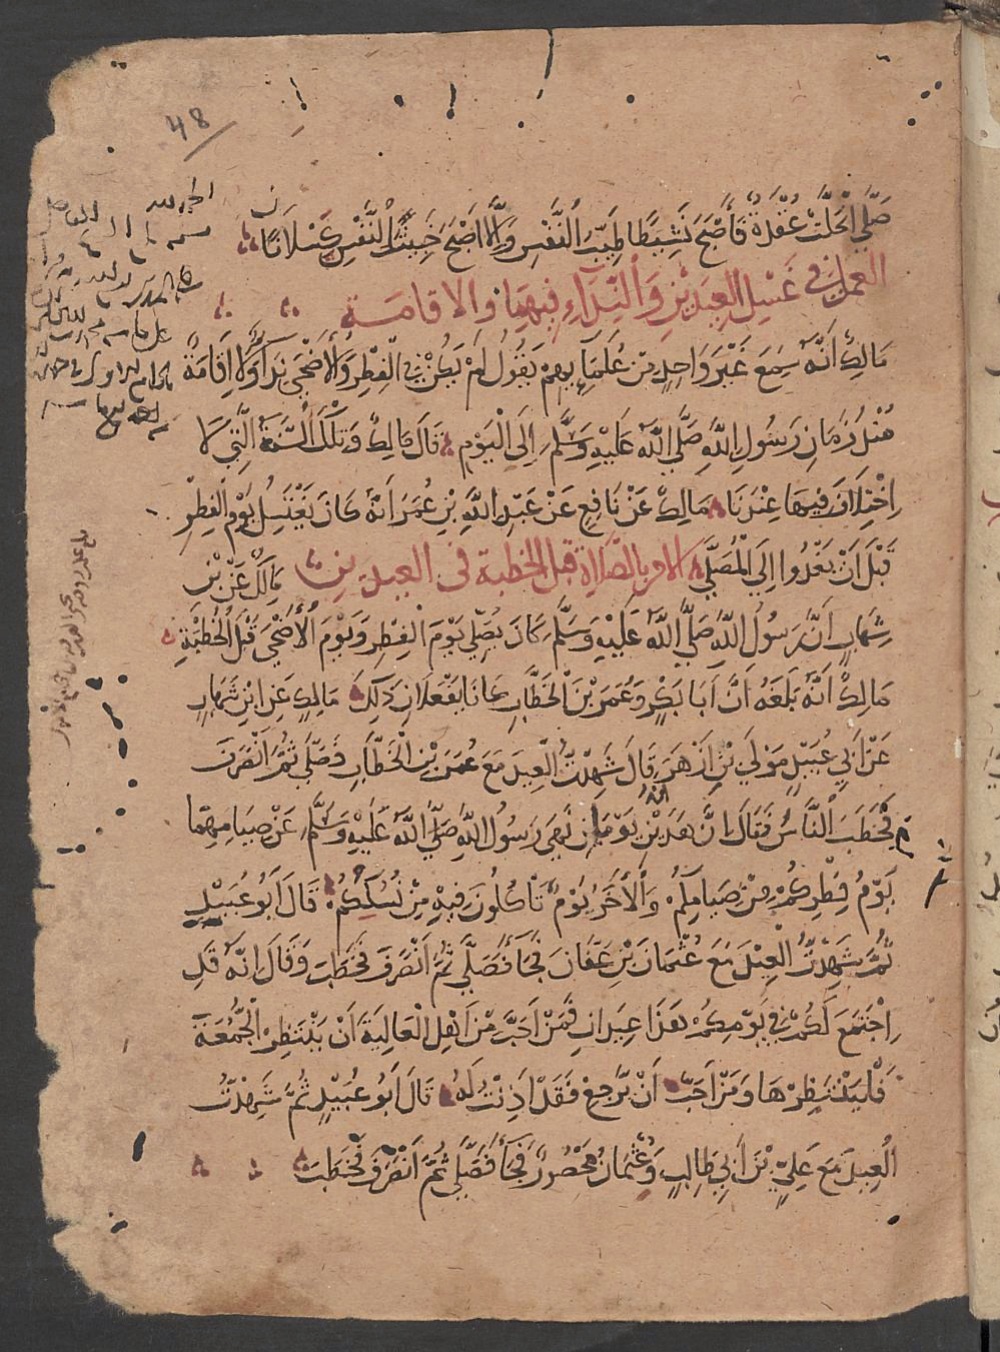 48
صَلَّي انْحَلَّتْ عُقْدَةٌ فَأَصْبَحَ نَشِيطًا طَيِّبَ النَّفْسِ وَإِلَّا أَصْبَحَ خَبِيثَ النَّفْسِ كَسْلَانًا
العمل في غسل العيدين والنداء فيهما والاقامة
مَالِكٌ أَنَّهُ سَمِعَ غَيْرَ وَاحِدٍ مِنْ عُلَمَايِهِمْ يَقُولُ لَمْ يَكُنْ فِي الْفِطْرِ وَالْأَضْحَي نِدَآءٌ وَلَا إِقَامَةٌ
مُنْذُ زَمَانِ رَسُولِ اللَّهِ صَلَّي اللَّهُ عَلَيْهِ وَسَلَّمَ إِلَي الْيَوْمِ قَالَ مَالِكٌ وَتِلْكَ السُّنَّةُ الَّتِي لَا
اِخْتِلَافَ فِيهَا عِنْدَنَا مَالِكٌ عَنْ نَافِعٍ عَنْ عَبْدِ اللَّهِ بْنِ عُمَرَ أَنَّهُ كَانَ يَغْتَسِلُ يَوْمَ الْفِطْرِ
قَبْلَ أَنْ يَغْدُوا إِلَي الْمُصَلَّي الامر بالصلاة قبل الخطبة في العيدين مَالِكٌ عَنْ بْنِ
شِهَابٍ أَنَّ رَسُولَ اللَّهِ صَلَّي اللَّهُ عَلَيْهِ وَسَلَّمَ كَانَ يُصَلِّي يَوْمَ الْفِطْرِ وَيَوْمَ الْأَضْحَي قَبْلَ الْخُطْبَةِ
مَالِكٌ أَنَّهُ بَلَغَهُ أَنَّ أَبَا بَكْرٍ وَعُمَرَ بْنَ الْخَطَّابِ كَانَا يَفْعَلَانِ ذَلِكَ مَالِكٌ عَنِ ابْنِ شِهَابٍ
عَنْ أَبِي عُبَيْدٍ مَوْلَي بْنِ أَزْهَرَ قَالَ شَهِدْتُ الْعِيدَ مَعَ عُمَرَ بْنِ الْخَطَّابِ فَصَلَّي ثُمَّ انْصَرَفَ
فَخَطَبَ النَّاسَ فَقَالَ إِنَّ هَذَيْنِ يَوْمَانِ نَهَي رَسُولُ اللَّهِ صَلَّي اللَّهُ عَلَيْهِ وَسَلَّمَ عَنْ صِيَامِهِمَا
يَوْمُ فِطْرِكُمْ مِنْ صِيَامِكُمْ وَالْأَخَرُ يَوْمٌ تَأْكُلُونَ فِيهِ مِنْ نُسُكِكُمْ قَالَ أَبُو عُبَيْدٍ
ثُمَّ شَهِدْتُ الْعِيدَ مَعَ عُثْمَانَ بْنِ عَفَّانَ فَجَآءَ فَصَلَّي ثُمَّ انْصَرَفَ فَخَطَبَ وَقَالَ إِنَّهُ قَدِ
اِجْتَمَعَ لَكُمْ فِي يَوْمِكُمْ هَذَا عِيدَانِ فَمَنْ أَحَبَّ مِنْ أَهْلِ الْعَالِيَةِ أَنْ يَنْتَظِرَ الْجُمُعَةَ
فَلْيَنْتَظِرْهَا وَمَنْ أَحَبَّ أَنْ يَرْجِعَ فَقَدْ أَذِنْتُ لَهُ قَالَ أَبُو عُبَيْدٍ ثُمَّ شَهِدْتُ
الْعِيدَ مَعَ عَلِيِّ بْنِ أَبِي طَالِبٍ وَعُثْمَانُ مَحْصُورٌ فَجَآءَ فَصَلَّي ثُمَّ انْصَرَفَ فَخَطَبَ